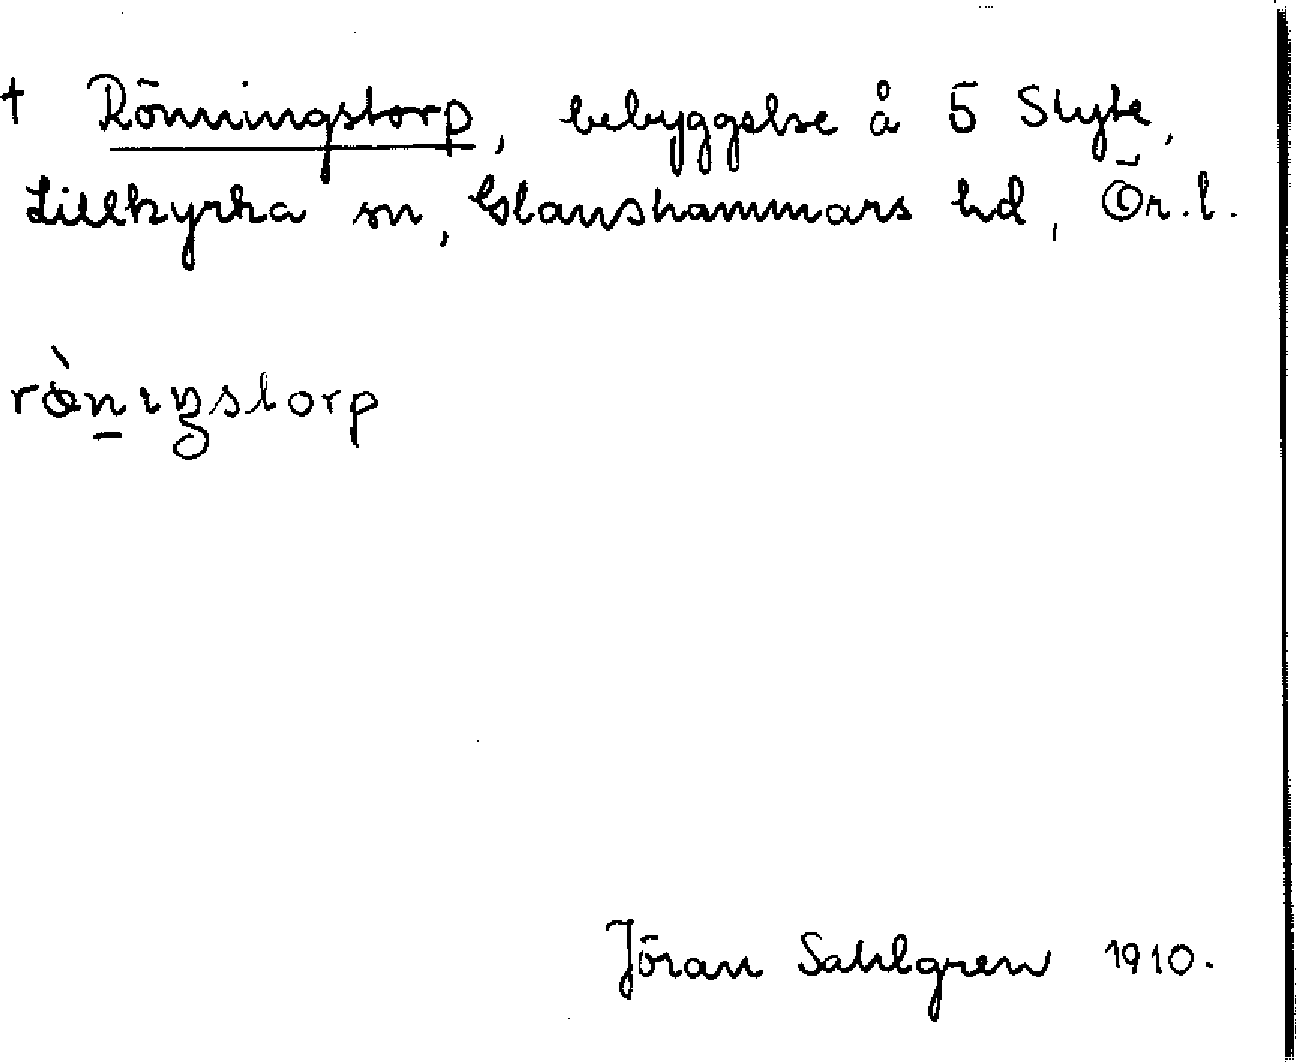 † Rönningstorp, bebyggelse å 5 Styte,
Lillkyrka sn, Glanshammars hd, Ör.l.
rö̀nıŋstorp
Jöran Sahlgren 1910.